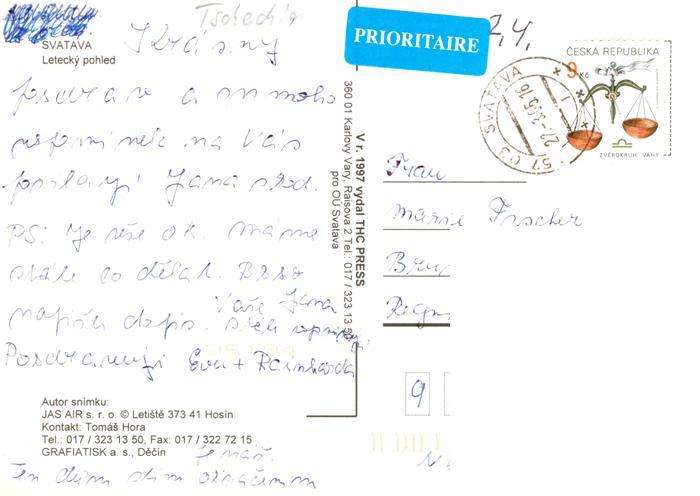 Tschechia
SVATAVA
Letecký pohled
Krásný
pozdrav a mnoho
vzpomínek na Vás
posílají Jana
PS: Je vše OK. máme
stále co dělat. Brzo
napíšu dopis.
Vaše Jana
Pozdravuji Evu + Reinharda
Autor snímku:
JAS AIR s. r. o. © Letiště 373 41 Hosín
Kontakt: Tomáš Hora
Tel.: 017 / 323 13 50, Fax: 017 / 322 72 15
GRAFIATISK a. s., Děčín
Je náš.
Ten dům
V r. 1997 vydal THC PRESS
360 01 Karlovy Vary, Raisova 2 Tel.: 017 / 323 13 50
pro OÚ Svatava
PRIORITAIRE
7.4.
ČESKÁ REPUBLIKA
9 Kč
ZVĚROKRUH VÁHY
357 03 SVATAVA
Frau
Marie Fischer
9